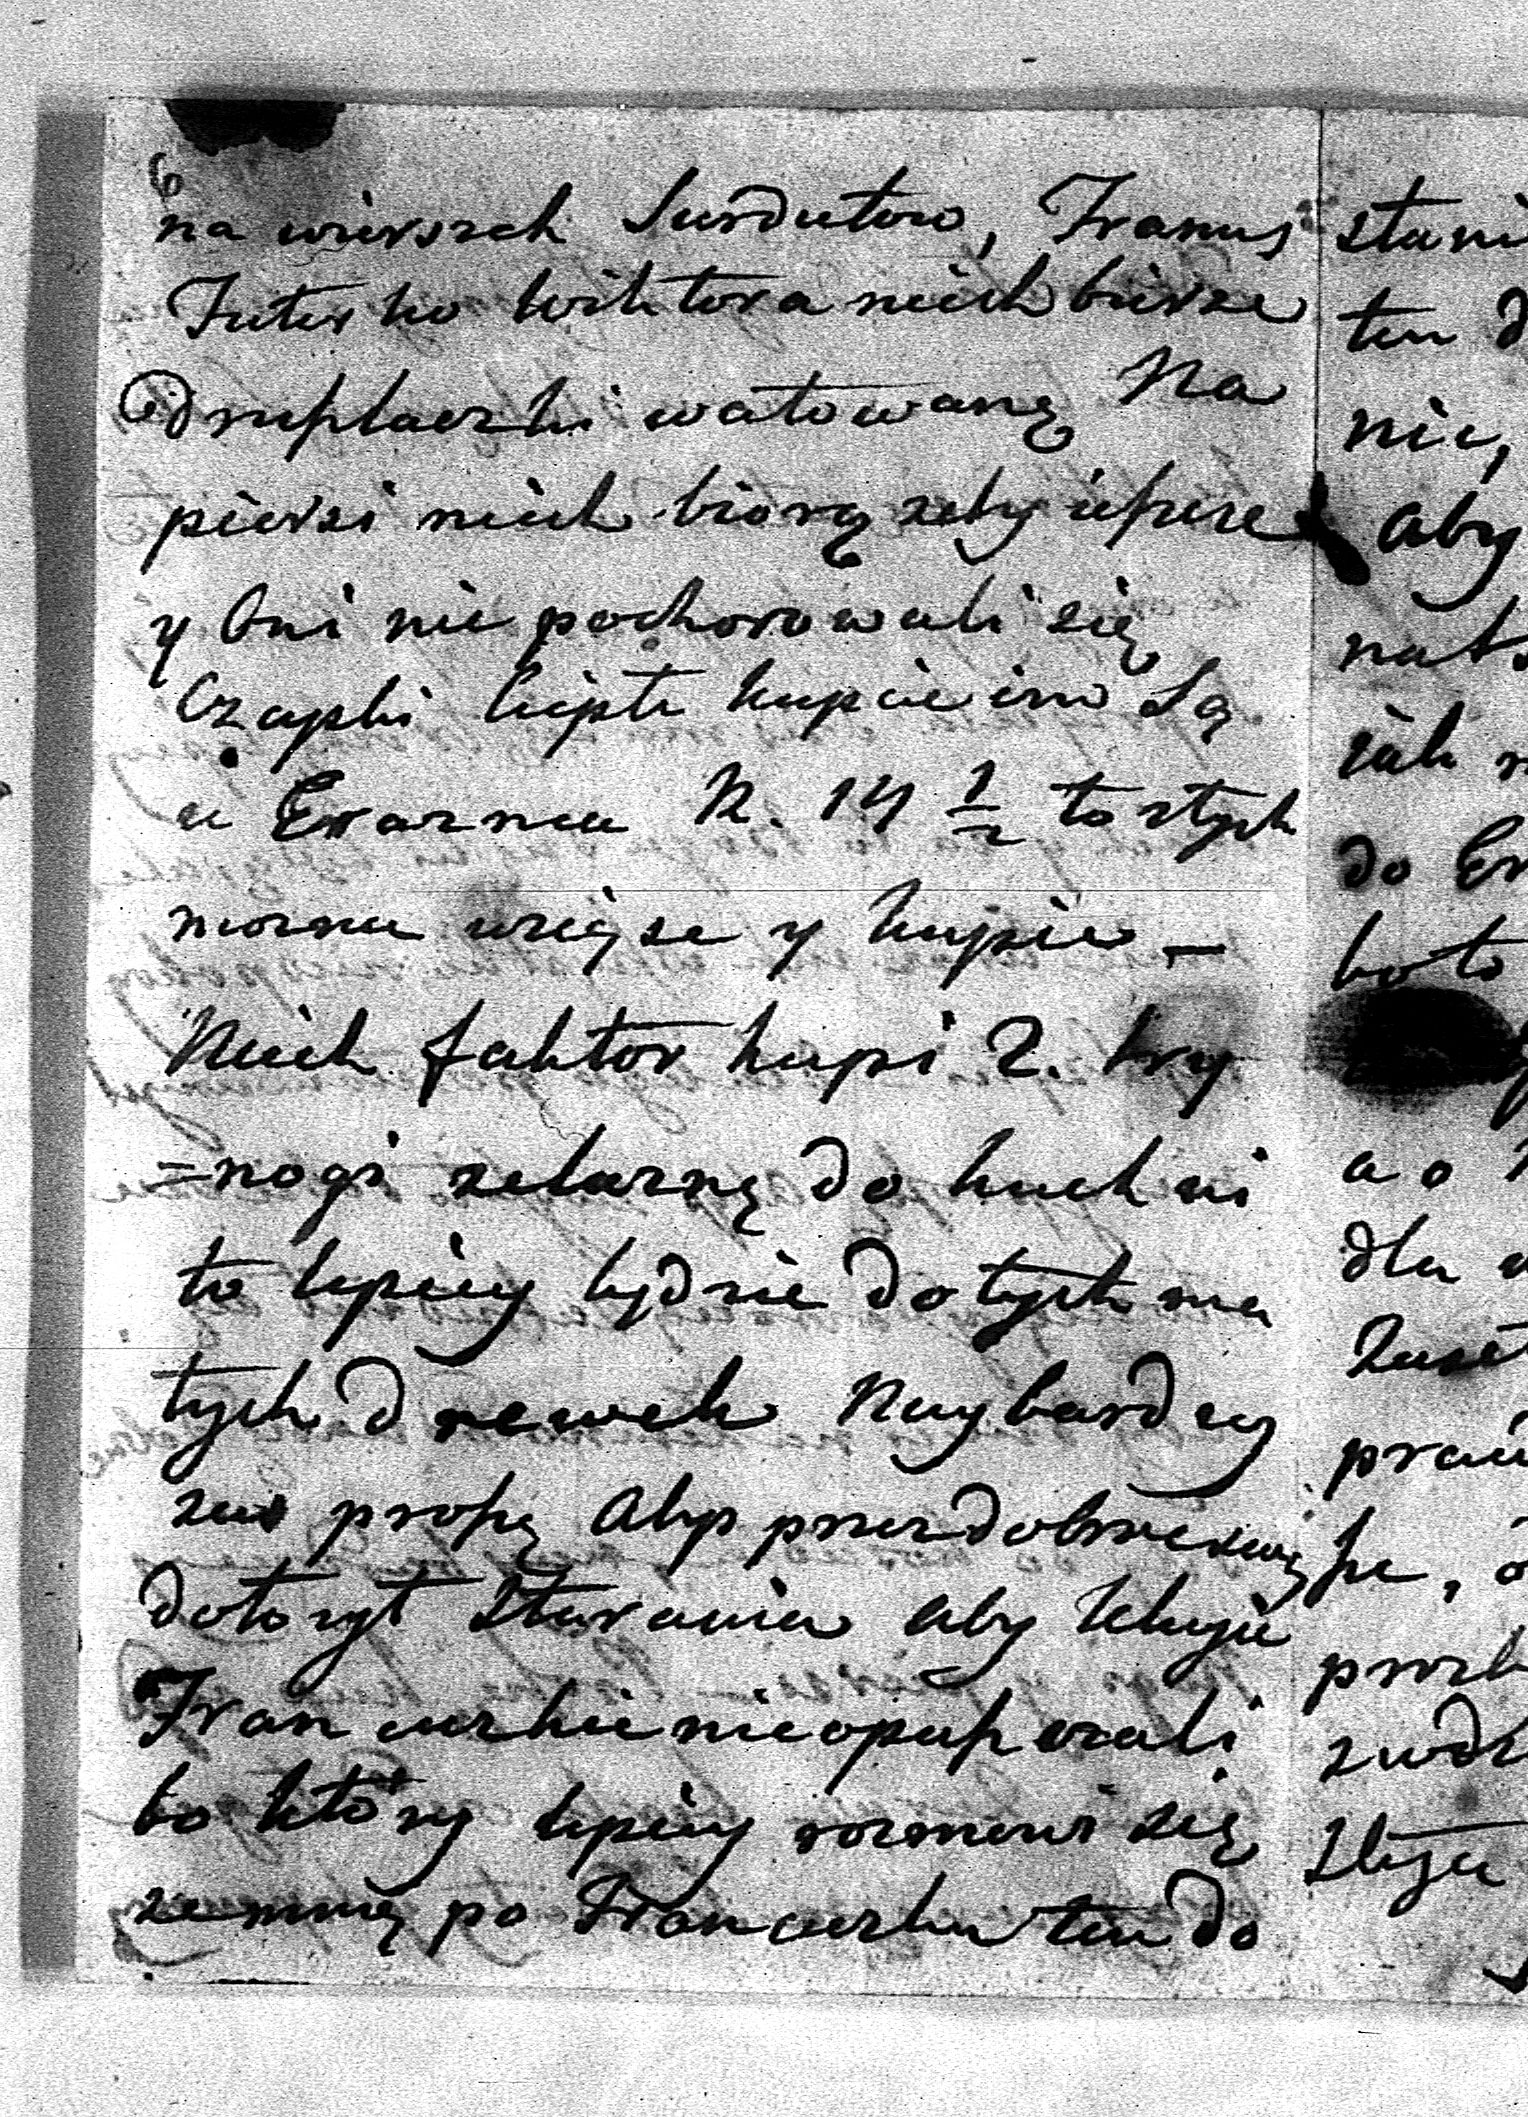 na wierszch Surdutow, Franuś
Futerko Wiktora niech bierze
i druplaczki watowaną Na
piersi niech biorą zeby ieszcze
y Oni nie pochorowali się
Czapki ciepłe kupcie im Są
u Erazma R. 14 1/2 to z tych
mozna wziąsc y kupic –
Niech faktor kupi 2. try
=nogi zelazną do kuchni
to lepiey bydzie do tych ma
łych drewek Naybardzey
zas proszę Abys przez dobroc swoię
dołozył Starania aby lekcyie
Francuzkie nie opuszczali
bo ktory lepiey rozmowi się
zemną po Francuzku ten do
stani
ten d
nic,
aby
nat
iak n
do Er
bo to
a o
dla
praw
sze, o
prozb